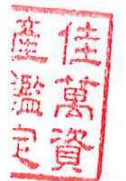 佳萬資
產鑑定